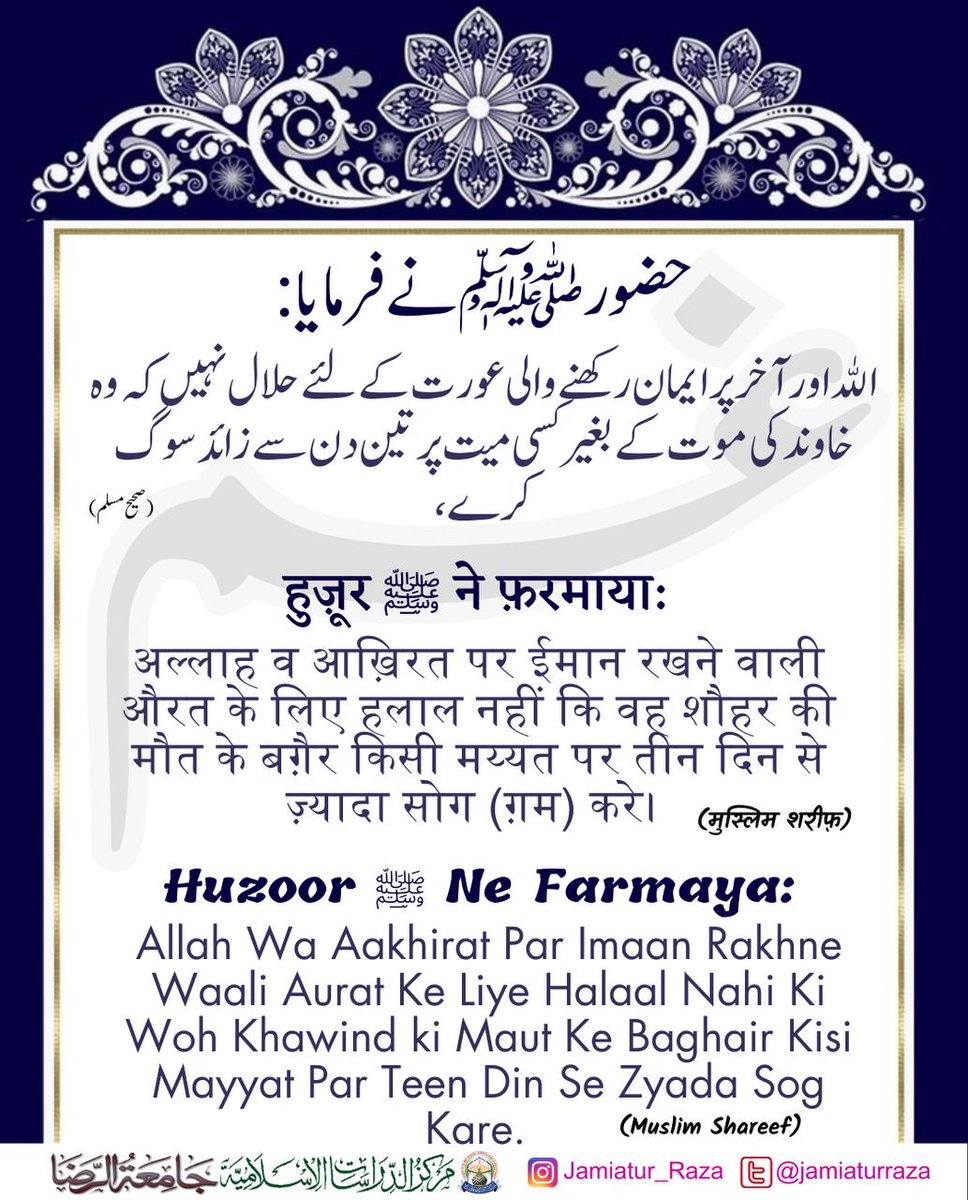 حضور ﷺ نے فرمایا:
اللہ اور آخر پر ایمان رکھنے والی عورت کے لئے حلال نہیں کہ وہ
خاوند کی موت کے بغیر کسی میت پر تین دن سے زائد سوگ
کرے،
(صحیح مسلم)
हुज़ूर ﷺ ने फ़रमाया:
अल्लाह व आख़िरत पर ईमान रखने वाली
औरत के लिए हलाल नहीं कि वह शौहर की
मौत के बग़ैर किसी मय्यत पर तीन दिन से
ज़्यादा सोग (ग़म) करे।
(मुस्लिम शरीफ़)
Huzoor ﷺ Ne Farmaya:
Allah Wa Aakhirat Par Imaan Rakhne
Waali Aurat Ke Liye Halaal Nahi Ki
Woh Khawind ki Maut Ke Baghair Kisi
Mayyat Par Teen Din Se Zyada Sog
Kare.
(Muslim Shareef)
مركز الدراسات الإسلامية جامعة الرضا
Jamiatur_Raza
@jamiaturraza
غم